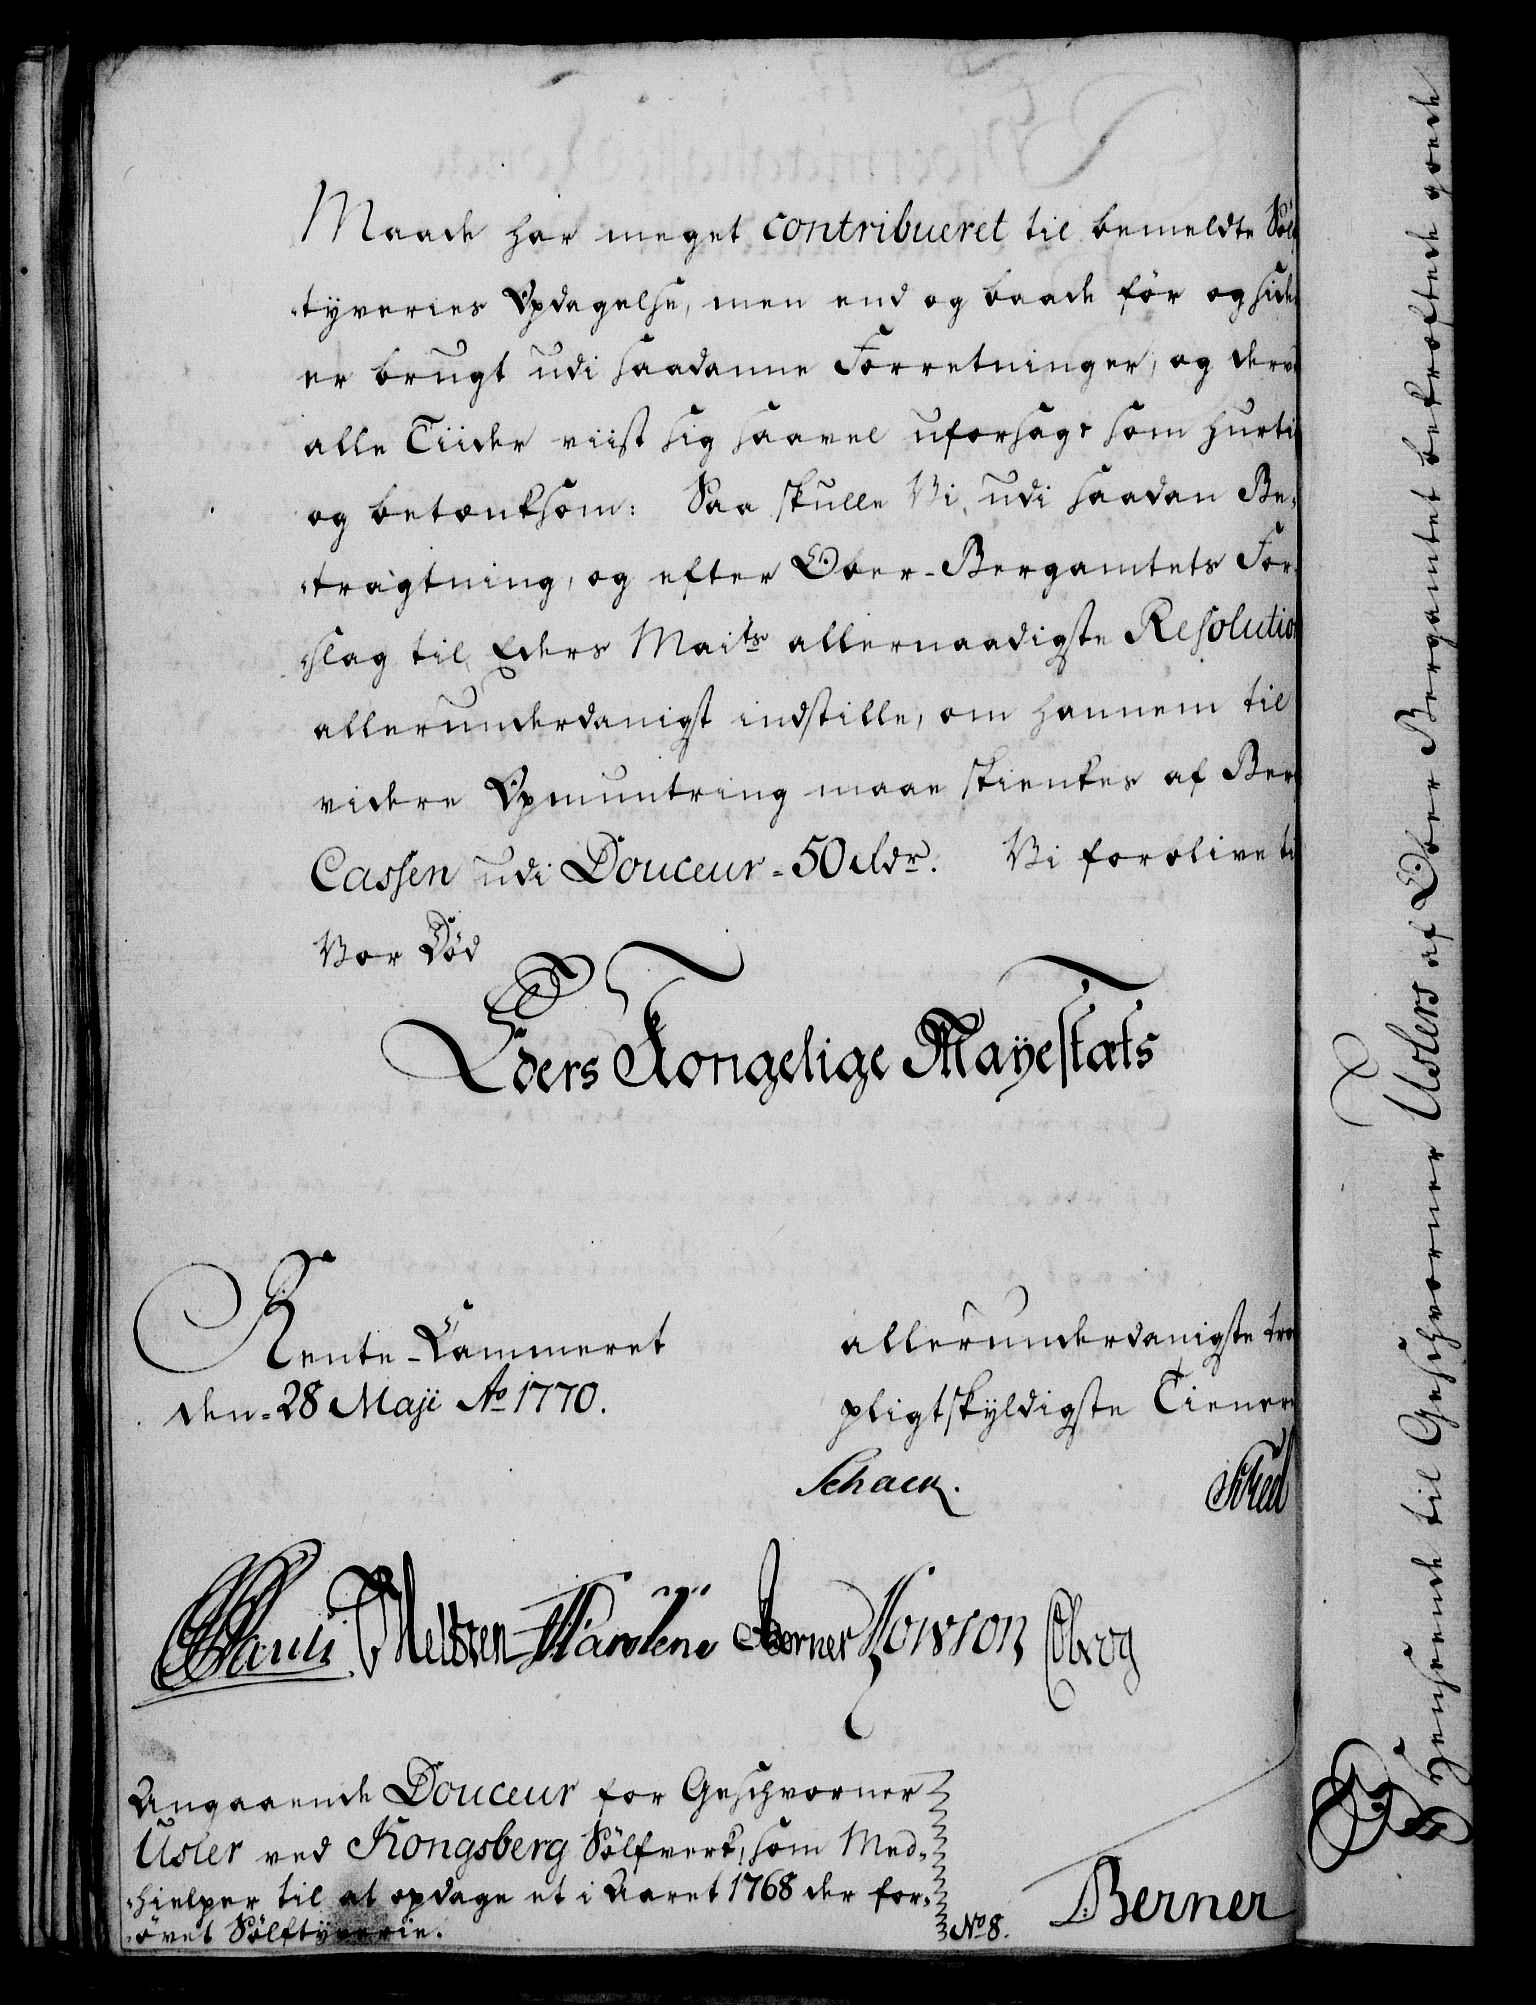 Maade har meget contribueret til bemeldte Sölf
-tyveries Opdagelse, men end og baade för og siden
er brugt udi saadanne Forretninger, og derved
alle Tiider viist sig saavel uforsagt som hurtig
og betænksom: Saa skulle Vi, udi saadan Be-
-tragtning, og efter Ober-Bergamtets For-
-slag til Eders Maits allernaadigste Resolution
allerunderdanigst indstille, om hannem til
videre Opmuntring maae skienkes af Berg
Cassen udi Douceur - 50 Rdr. Vi forblive til
Vor Död
Eders Kongelige Mayestæts
Rente-Cammeret
den - 28 Maji Ao 1770.
allerunderdanigste troe
pligtskyldigste Tienere
Schack.
Pauli Berner Cborg
Angaaende Douceur for Geschworner
Usler ved Kongsberg Sölfverk, som Med-
-hielper til at opdage et i Aaret 1768 der for-
-övet Sölftyverie.
No 8.
Berner
I Henseende til Geschworner Uslers af Ober Bergamtet bekræftede goede